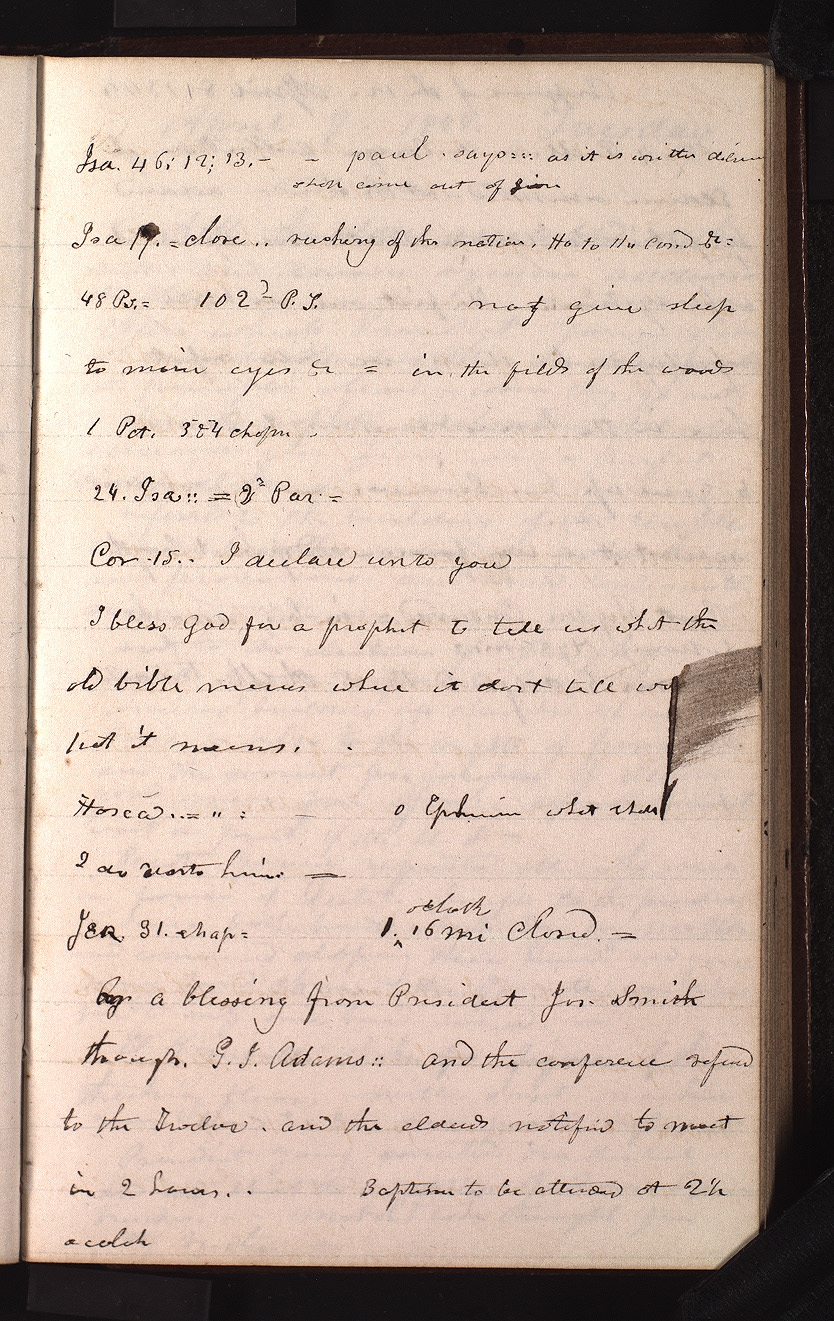 Isa. 46; 12; 13.- - paul. says::: as it is written deliver
shall come out of Zion
Isa 17. = close .. rushing of the nation. Ho to the Land &c=
48 Ps.= 102d P.S. not give sleep
to mine eyes &c = in, the fields of the woods
1 Pet. 3 & 4 chapr.
24. Isa:: = 2d Par =
Cor. 15.. I declare unto you
I bless god for a prophet to tell us what the
old bible means where it dont tell w
hat it means. .
Hosea.. = " : — o Ephraim what shall
I do unto him: =
Jer. 31. chap=
oclock
1. 16 mi Closed. =
by a blessing from President Jos. Smith
through. G. J. Adams:: and the conference refered
to the Twelve. and the elders notified to meet
in 2 hours.. Baptism to be attended at 2 1/2
oclock